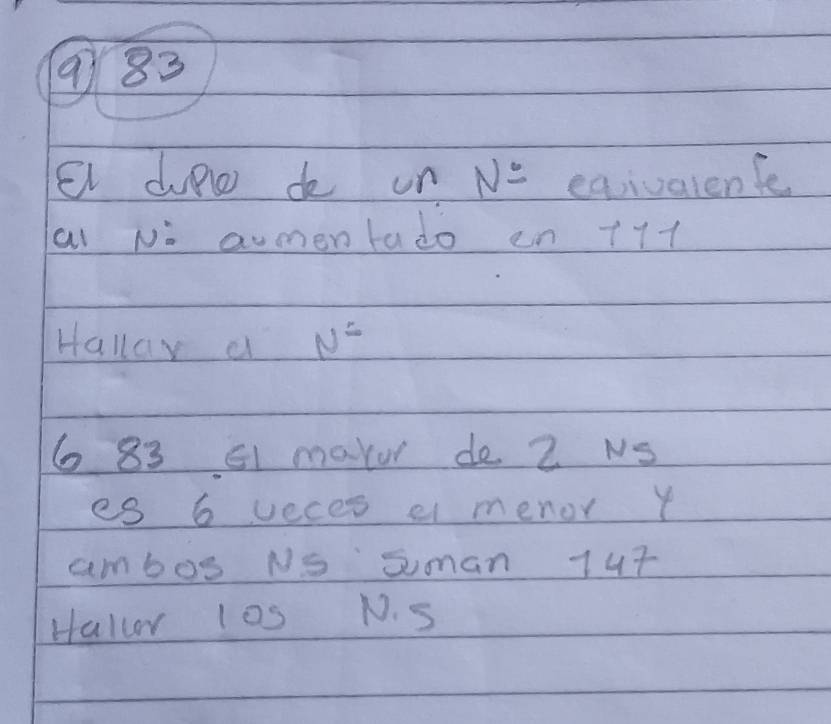 9) 83
El duplo de un Nº equivalente
al Nº aumentado en 111
Hallar el Nº
6 83 El mayor de 2 NS
es 6 veces el menor y
ambos NS suman 147
Hallar los N.S